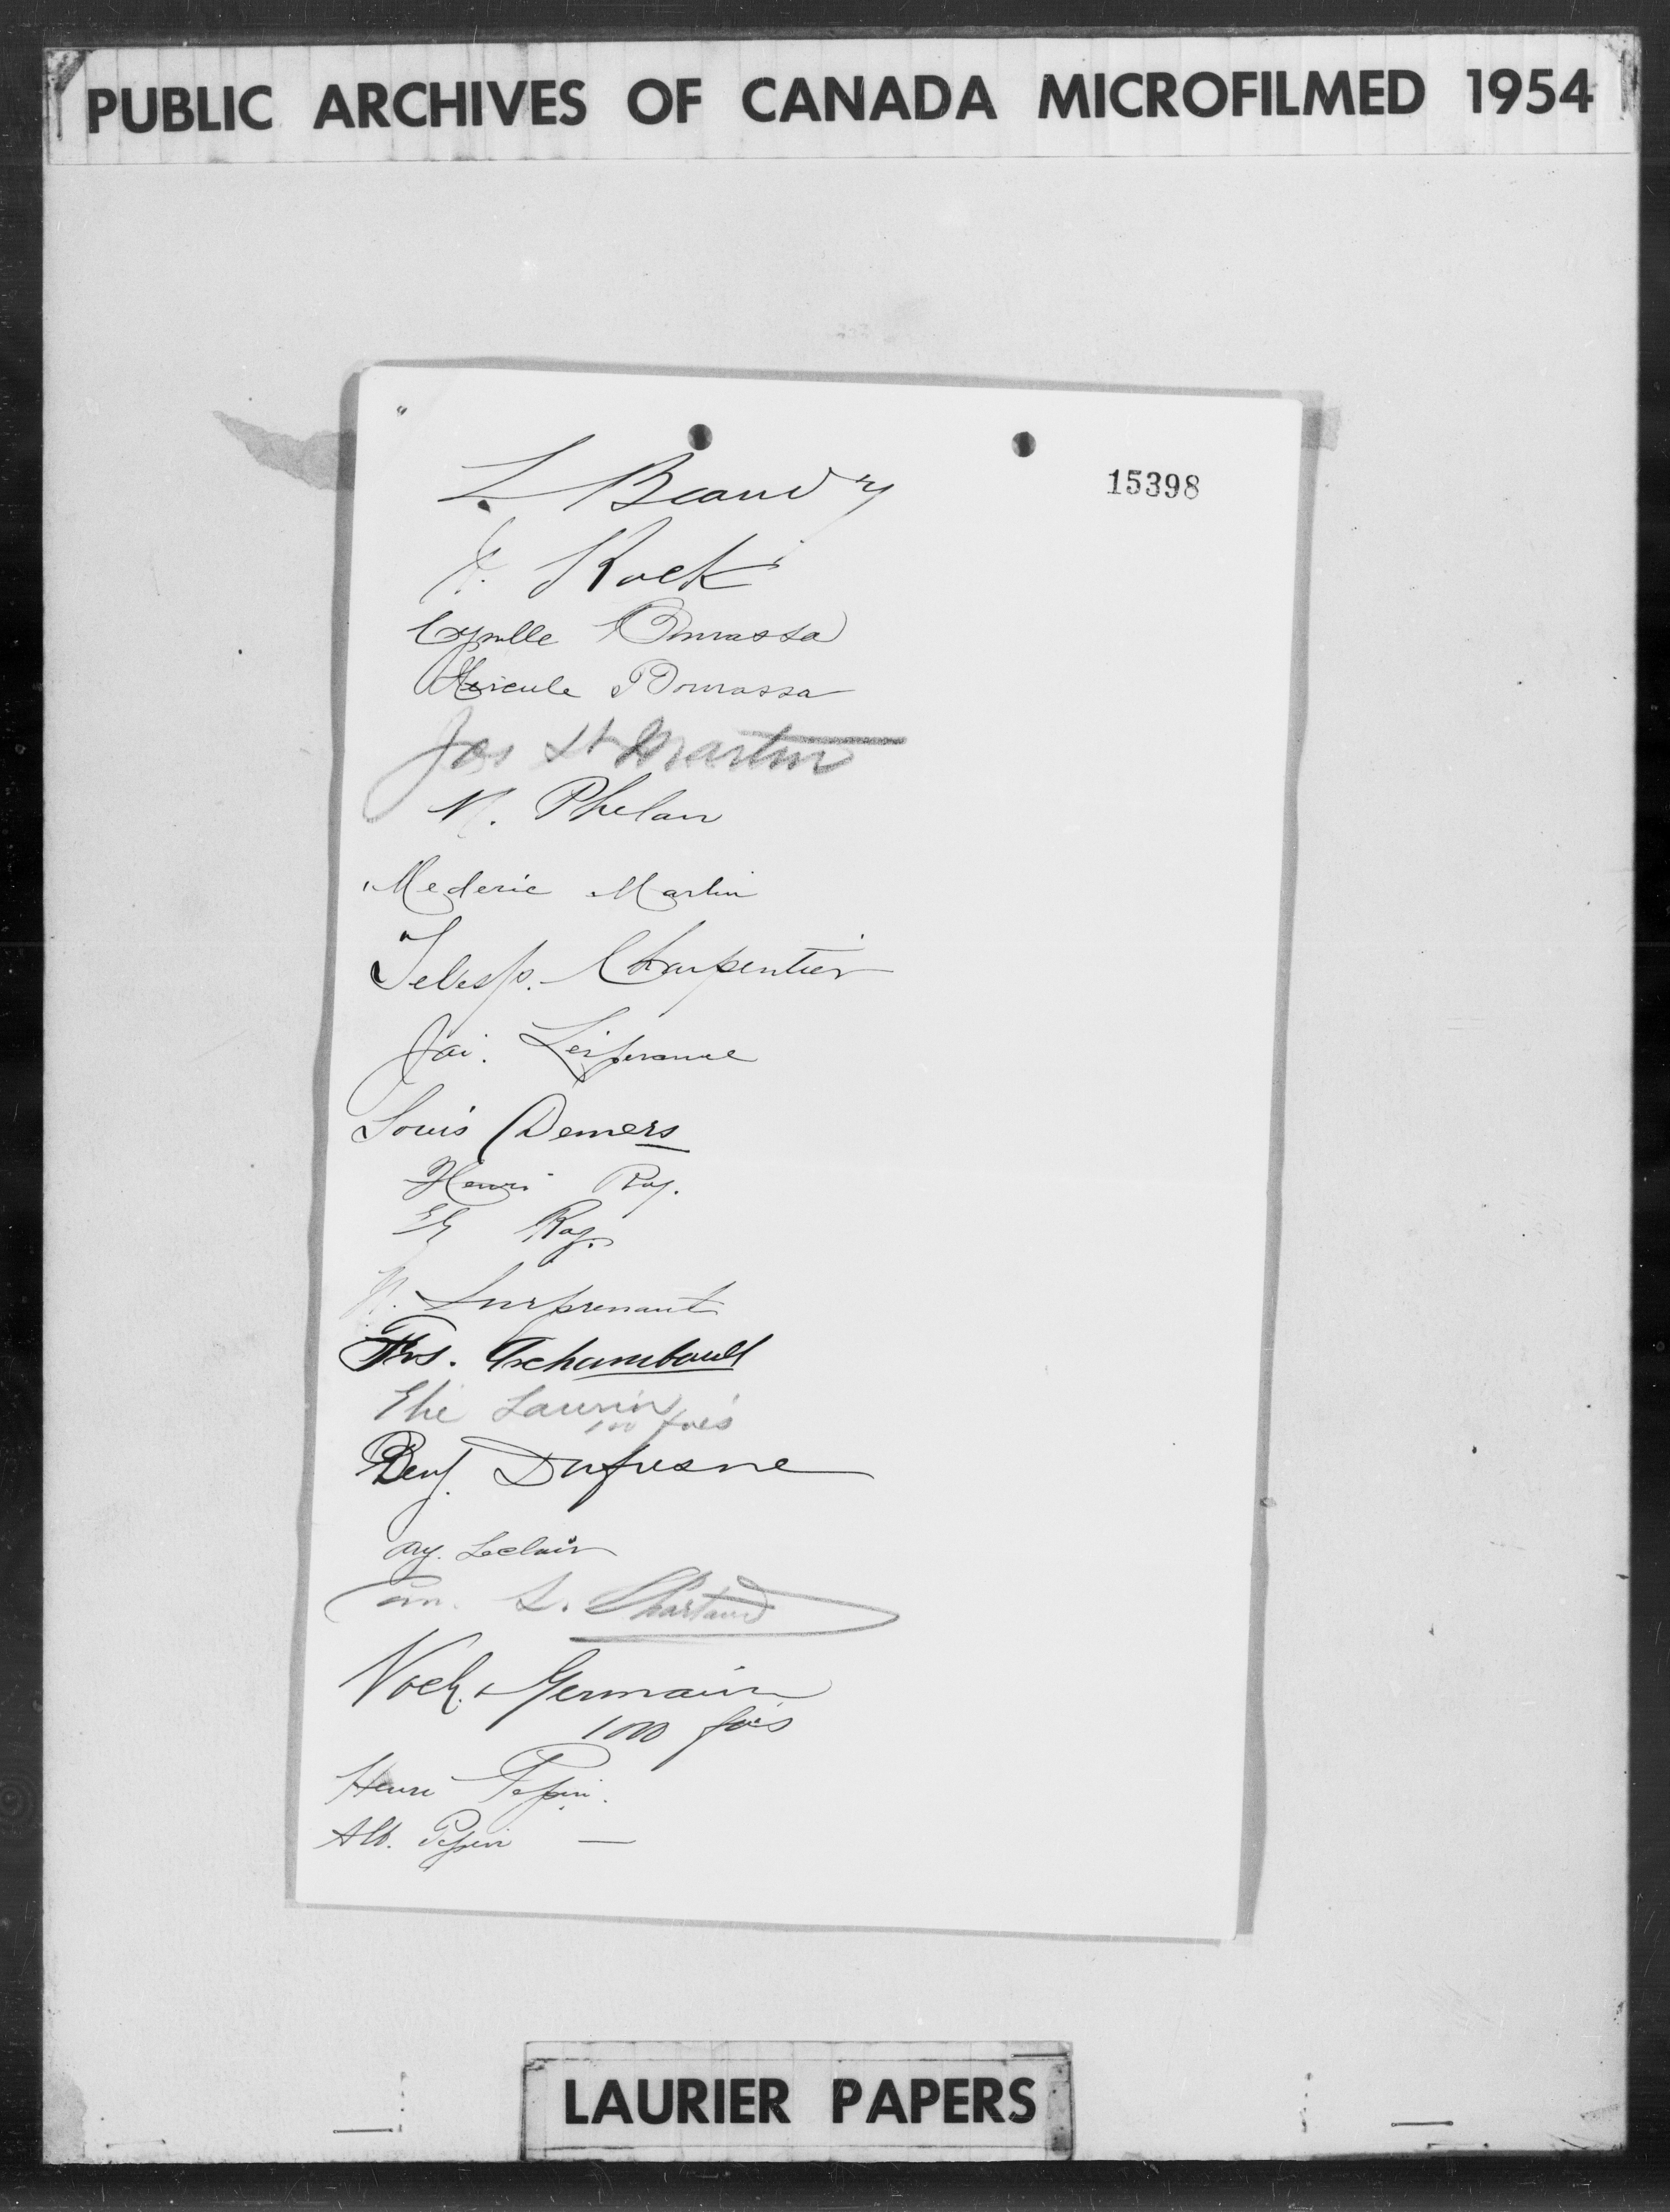 PUBLIC ARCHIVES OF CANADA MICROFILMED 1954
15398
L. Beaudry
Rock
Cyrille Bourassa
Hercule Bourassa
Jos St Martin
N. Phelan
Mederic Martin
Telesp. Charpentier
Lesperance
Louis Demers
Henri Roy.
Roy.
Surprenant
Frs. Archambault
Elie Laurin
100 fois
Benj. Dufresne
Leclair
L. Chartrand
Germain
1000 fois
Henri Pepin.
Alb. Pepin —
LAURIER PAPERS